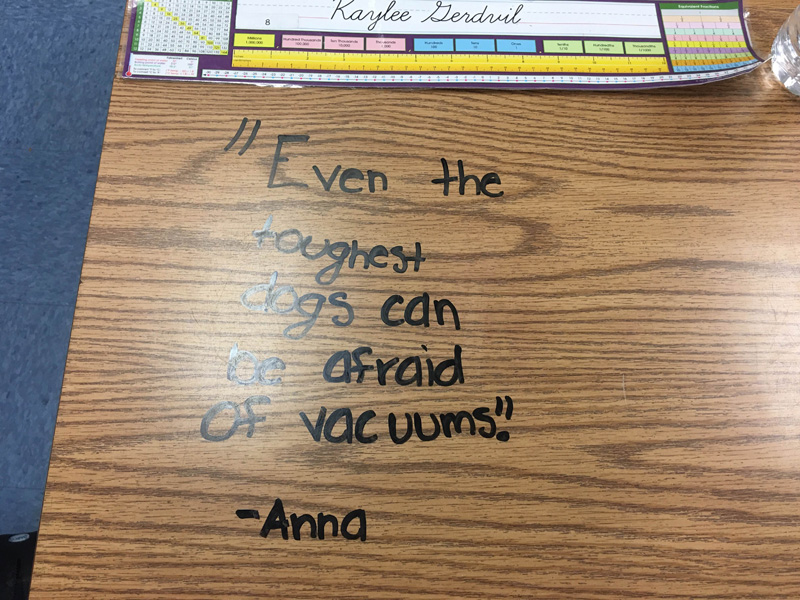 Kaylee Gerdvil
8
Millions
1,000,000
Hundred Thousands
100,000
Ten Thousands
10,000
Thousands
1,000
Hundreds
100
Tens
10
Ones
1
Tenths
1/10
Hundredths
1/100
Thousandths
1/1000
Equivalent Fractions
"Even the
toughest
dogs can
be afraid
of vacuums."
-Anna